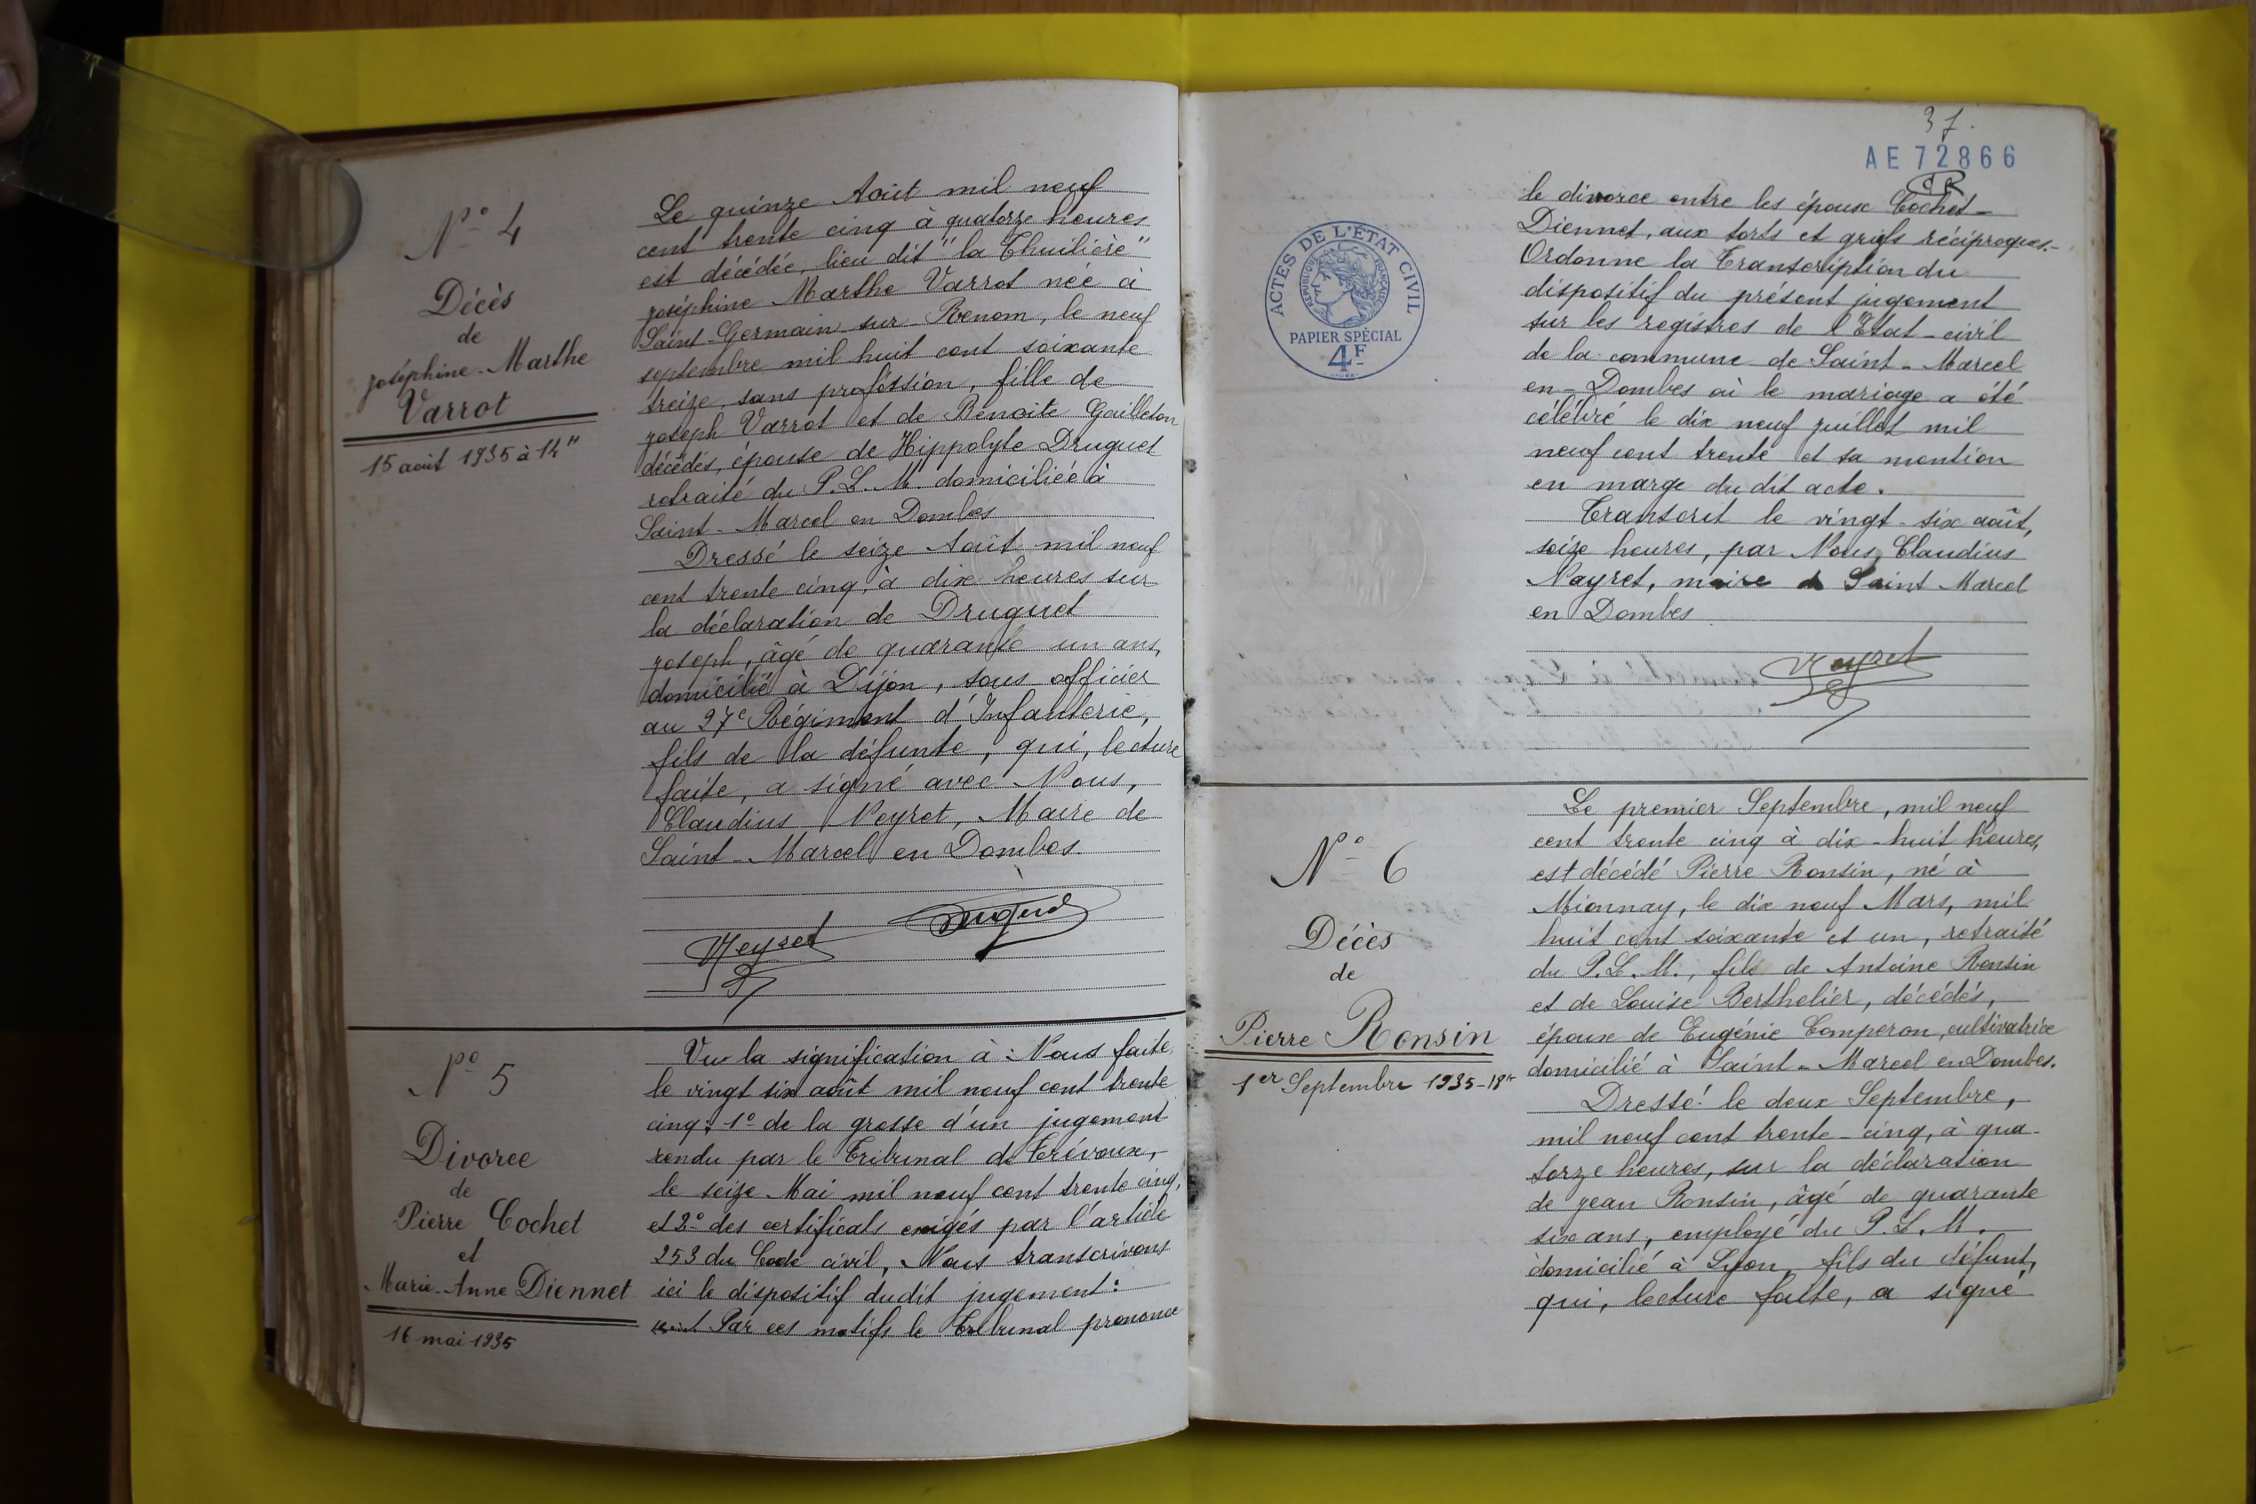 N° 4
Décès
de
Joséphine-Marthe
Varrot
15 août 1935 à 14h
Le quinze Août mil neuf
cent trente cinq à quatorze heures
est décédée, lieu dit "la Thuilière"
Joséphine Marthe Varrot née à
Saint-Germain sur Renom, le neuf
septembre mil huit cent soixante
treize, sans profession, fille de
Joseph Varrot et de Benoite Gailleton
décédés, épouse de Hippolyte Druguet
retraité du P.L.M. domiciliée à
Saint-Marcel en Dombes
Dressé le seize Août mil neuf
cent trente cinq, à dix heures sur
la déclaration de Druguet
Joseph, âgé de quarante un ans,
domicilié à Dijon, sous officier
au 27e Régiment d'Infanterie,
fils de la défunte, qui, lecture
faite, a signé avec Nous,
Claudius Neyret, Maire de
Saint-Marcel en Dombes
Neyret Druguet
N° 5
Divorce
de
Pierre Cochet
et
Marie-Anne Diennet
16 mai 1935
Vu la signification à Nous faite
le vingt six août mil neuf cent trente
cinq: 1° de la grosse d'un jugement
rendu par le Tribunal de Trévoux,
le seize Mai mil neuf cent trente cinq,
et 2° des certificats exigés par l'article
253 du Code civil, Nous transcrivons
ici le dispositif dudit jugement:
Par ces motifs le Tribunal prononce
37.
AE 72866
ACTES DE L'ÉTAT CIVIL
RÉPUBLIQUE FRANÇAISE
PAPIER SPÉCIAL
4F
le divorce entre les époux Cochet-
Diennet, aux torts et griefs réciproques.-
Ordonne la Transcription du
dispositif du présent jugement
sur les registres de l'Etat-civil
de la commune de Saint-Marcel
en-Dombes où le mariage a été
célébré le dix neuf juillet mil
neuf cent trente et sa mention
en marge dudit acte.
Transcrit le vingt-six août,
seize heures, par Nous, Claudius
Nayret, maire de Saint Marcel
en Dombes
Neyret
N° 6
Décès
de
Pierre Ronsin
1er Septembre 1935-18h
Le premier Septembre, mil neuf
cent trente cinq à dix-huit heures,
est décédé Pierre Ronsin, né à
Mionnay, le dix neuf Mars, mil
huit cent soixante et un, retraité
du P.L.M., fils de Antoine Ronsin
et de Louise Berthelier, décédés,
époux de Eugénie Comperon, cultivatrice
domicilié à Saint-Marcel en Dombes.
Dressé le deux Septembre,
mil neuf cent trente-cinq, à qua-
torze heures, sur la déclaration
de Jean Ronsin, âgé de quarante
six ans, employé du P.L.M.
domicilié à Lyon, fils du défunt,
qui, lecture faite, a signé